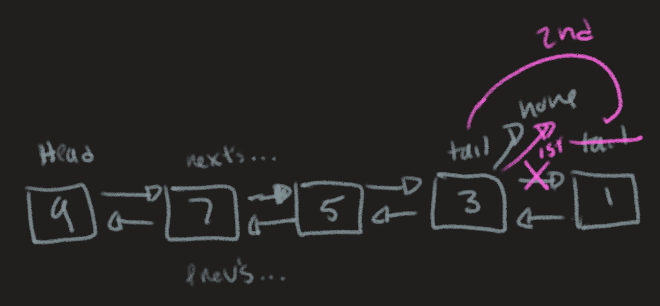 2nd
none
Head
next's...
tail
1ST
tail
9
7
5
3
1
prev's...